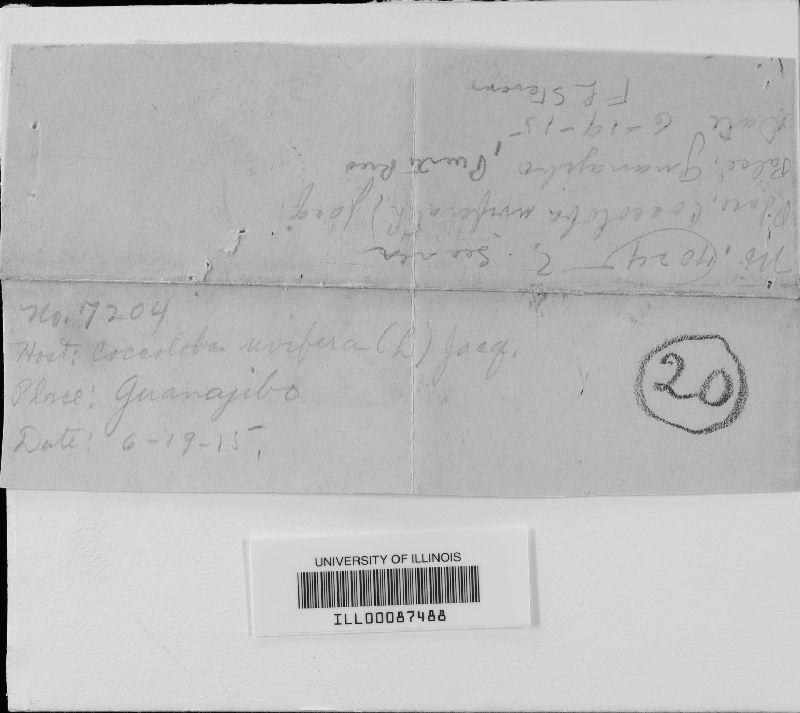 No. 7204
Host: Coccoloba uvifera (L) Jacq.
Place: Guanajibo
Date: 6-19-15.
20
No. 7024
Coccoloba uvifera (L) Jacq.
Guanajibo,
Date 6-19-15
F L Stevens
UNIVERSITY OF ILLINOIS
ILL00087488